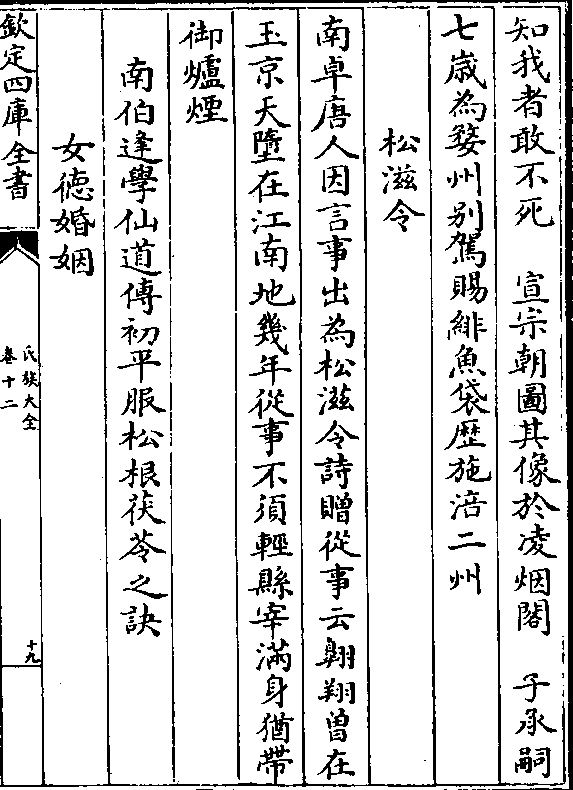 知我者敢不死　宣宗朝圖其像於凌烟閣　子承嗣
七歲為婺州别駕賜緋魚袋歴施涪二州
松滋令
南卓唐人因言事出為松滋令詩贈從事云翺翔曽在
玉京天墮在江南地幾年從事不須輕縣宰滿身猶帶
御爐煙
南伯逢學仙道傳初平服松根茯苓之訣
女徳婚姻
欽定四庫全書
氏族大全
卷十二
十九